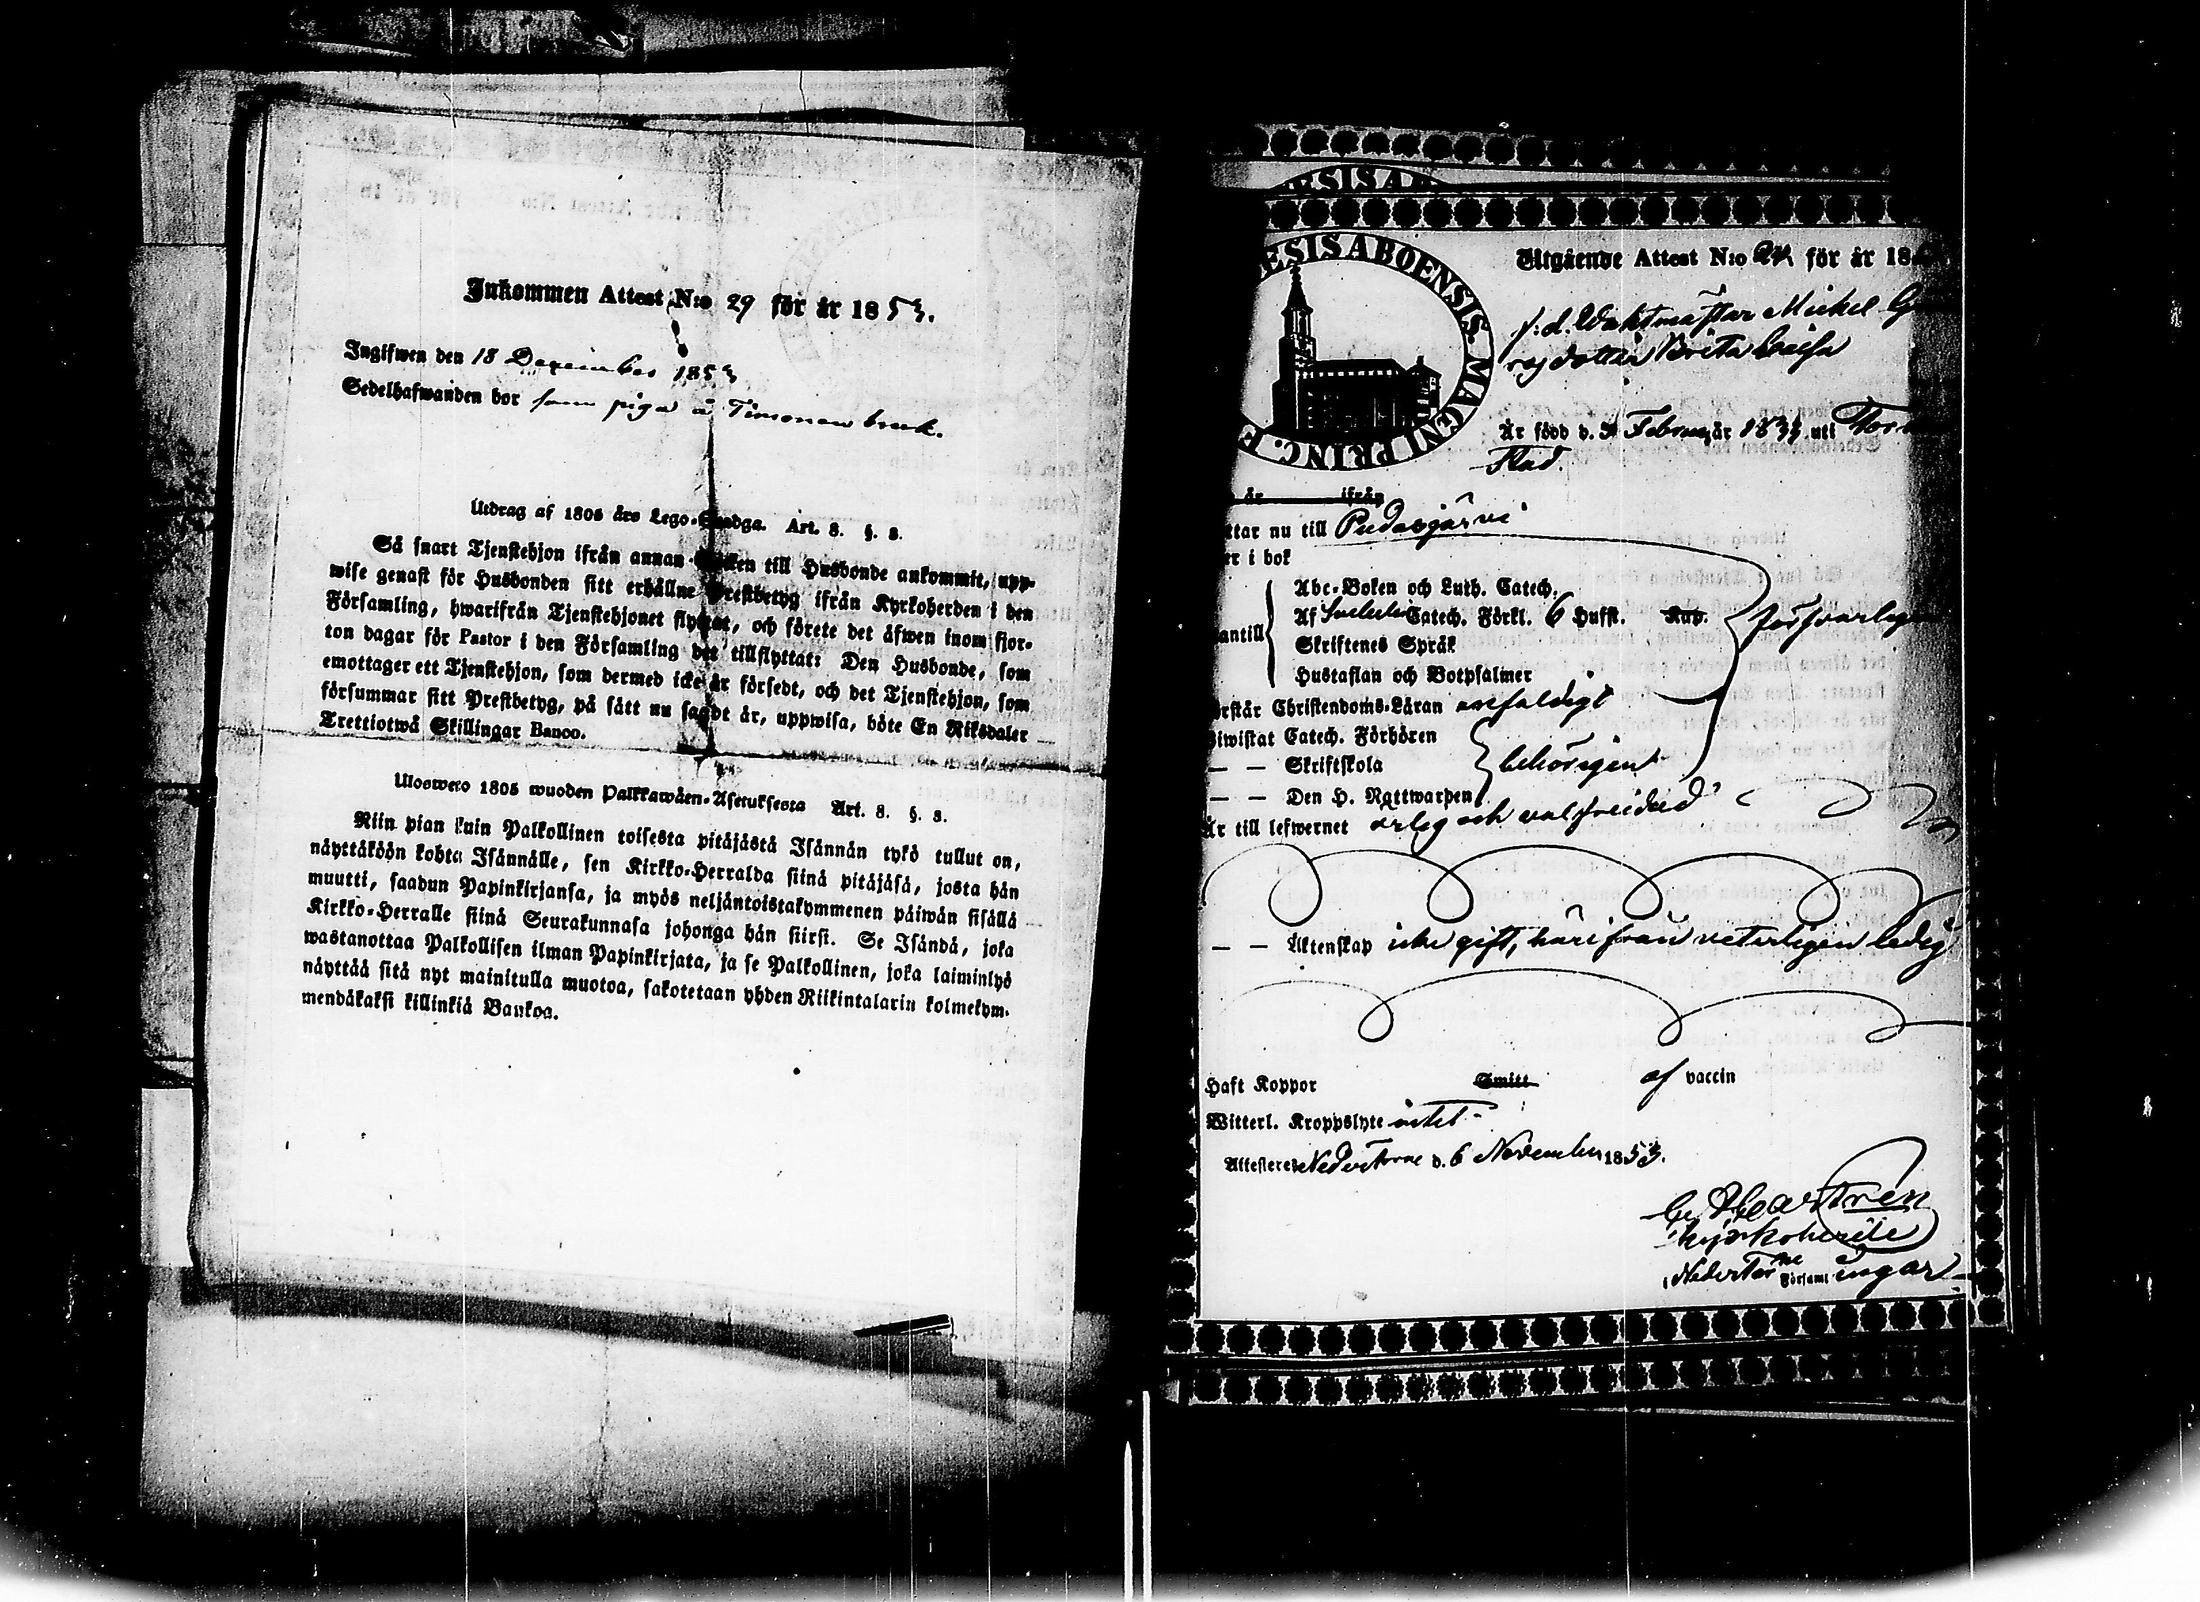 Inkommen Attest N:o 29 för år 1853.
Ingifwen den 18 December 1853
Sedelhafwanden bor som piga å Timonen bruk.
Utdrag af 1805 års Lego-Stadga. Art. 8. §. 8.
Så snart Tjenstehjon ifrån annan Socken till Husbonde ankommit, upp-
wise genast för Husbonden sitt erhållne Prestbetyg ifrån Kyrkoherden i den
Församling, hwarifrån Tjenstehjonet flyttat, och förete det äfwen inom fjor-
ton dagar för Pastor i den Församling det tillflyttat: Den Husbonde, som
emottager ett Tjenstehjon, som dermed icke är försedt, och det Tjenstehjon, som
försummar sitt Prestbetyg, på sätt nu sagdt är, uppwisa, böte En Riksdaler
Trettiotwå Skillingar Banco.
Uloswето 1805 wuoden Palkkawäen-Asetuksesta Art. 8. §. 8.
Niin pian kuin Palkollinen toisesta pitäjästä Isännän tykö tullut on,
näyttäköön kohta Isännälle, sen Kirkko-Herralda siinä pitäjäsä, josta hän
muutti, saadun Papinkirjansa, ja myös neljäntoistakymmenen päiwän sisällä
Kirkko-Herralle siinä Seurakunnasa johonga hän siirsi. Se Isändä, joka
wastanottaa Palkollisen ilman Papinkirjata, ja se Palkollinen, joka laiminlyö
näyttää sitä nyt mainitulla muotoa, sakotetaan yhden Riikintalarin kolmekym-
mendäkaksi killinkiä Bankoa.
ESISABOENSIS. MAGNI PRINC. F
Utgående Attest N:o 24 för år 18
f.d. Waktmästar Mickel
dotter Brita Caisa
Är född d. Februarii 183 uti
Stad.
år ifrån
ttar nu till Pudasjärvi
er i bok
Abc-Boken och Luth. Catech.
Af Svebelii Catech. Förkl. 6 Hufst. Kap.
antill Skriftenes Språk försvarlig
Hustaflan och Botpsalmer
rstår Christendoms-Läran enfaldigt
iwistat Catech. Förhören
— — Skriftskola behörigen
— — Den H. Nattwarden
Är till lefwernet ärlig och välfrejdad
— — Äktenskap icke gift, härifrån veterligen ledig
Haft Koppor Smitt af vaccin
Witterl. Kroppslyte intet
Attesterer Nedertorne d. 6 November 1853.
Castrén
Kyrkoherde
i NederTorne Församlingar